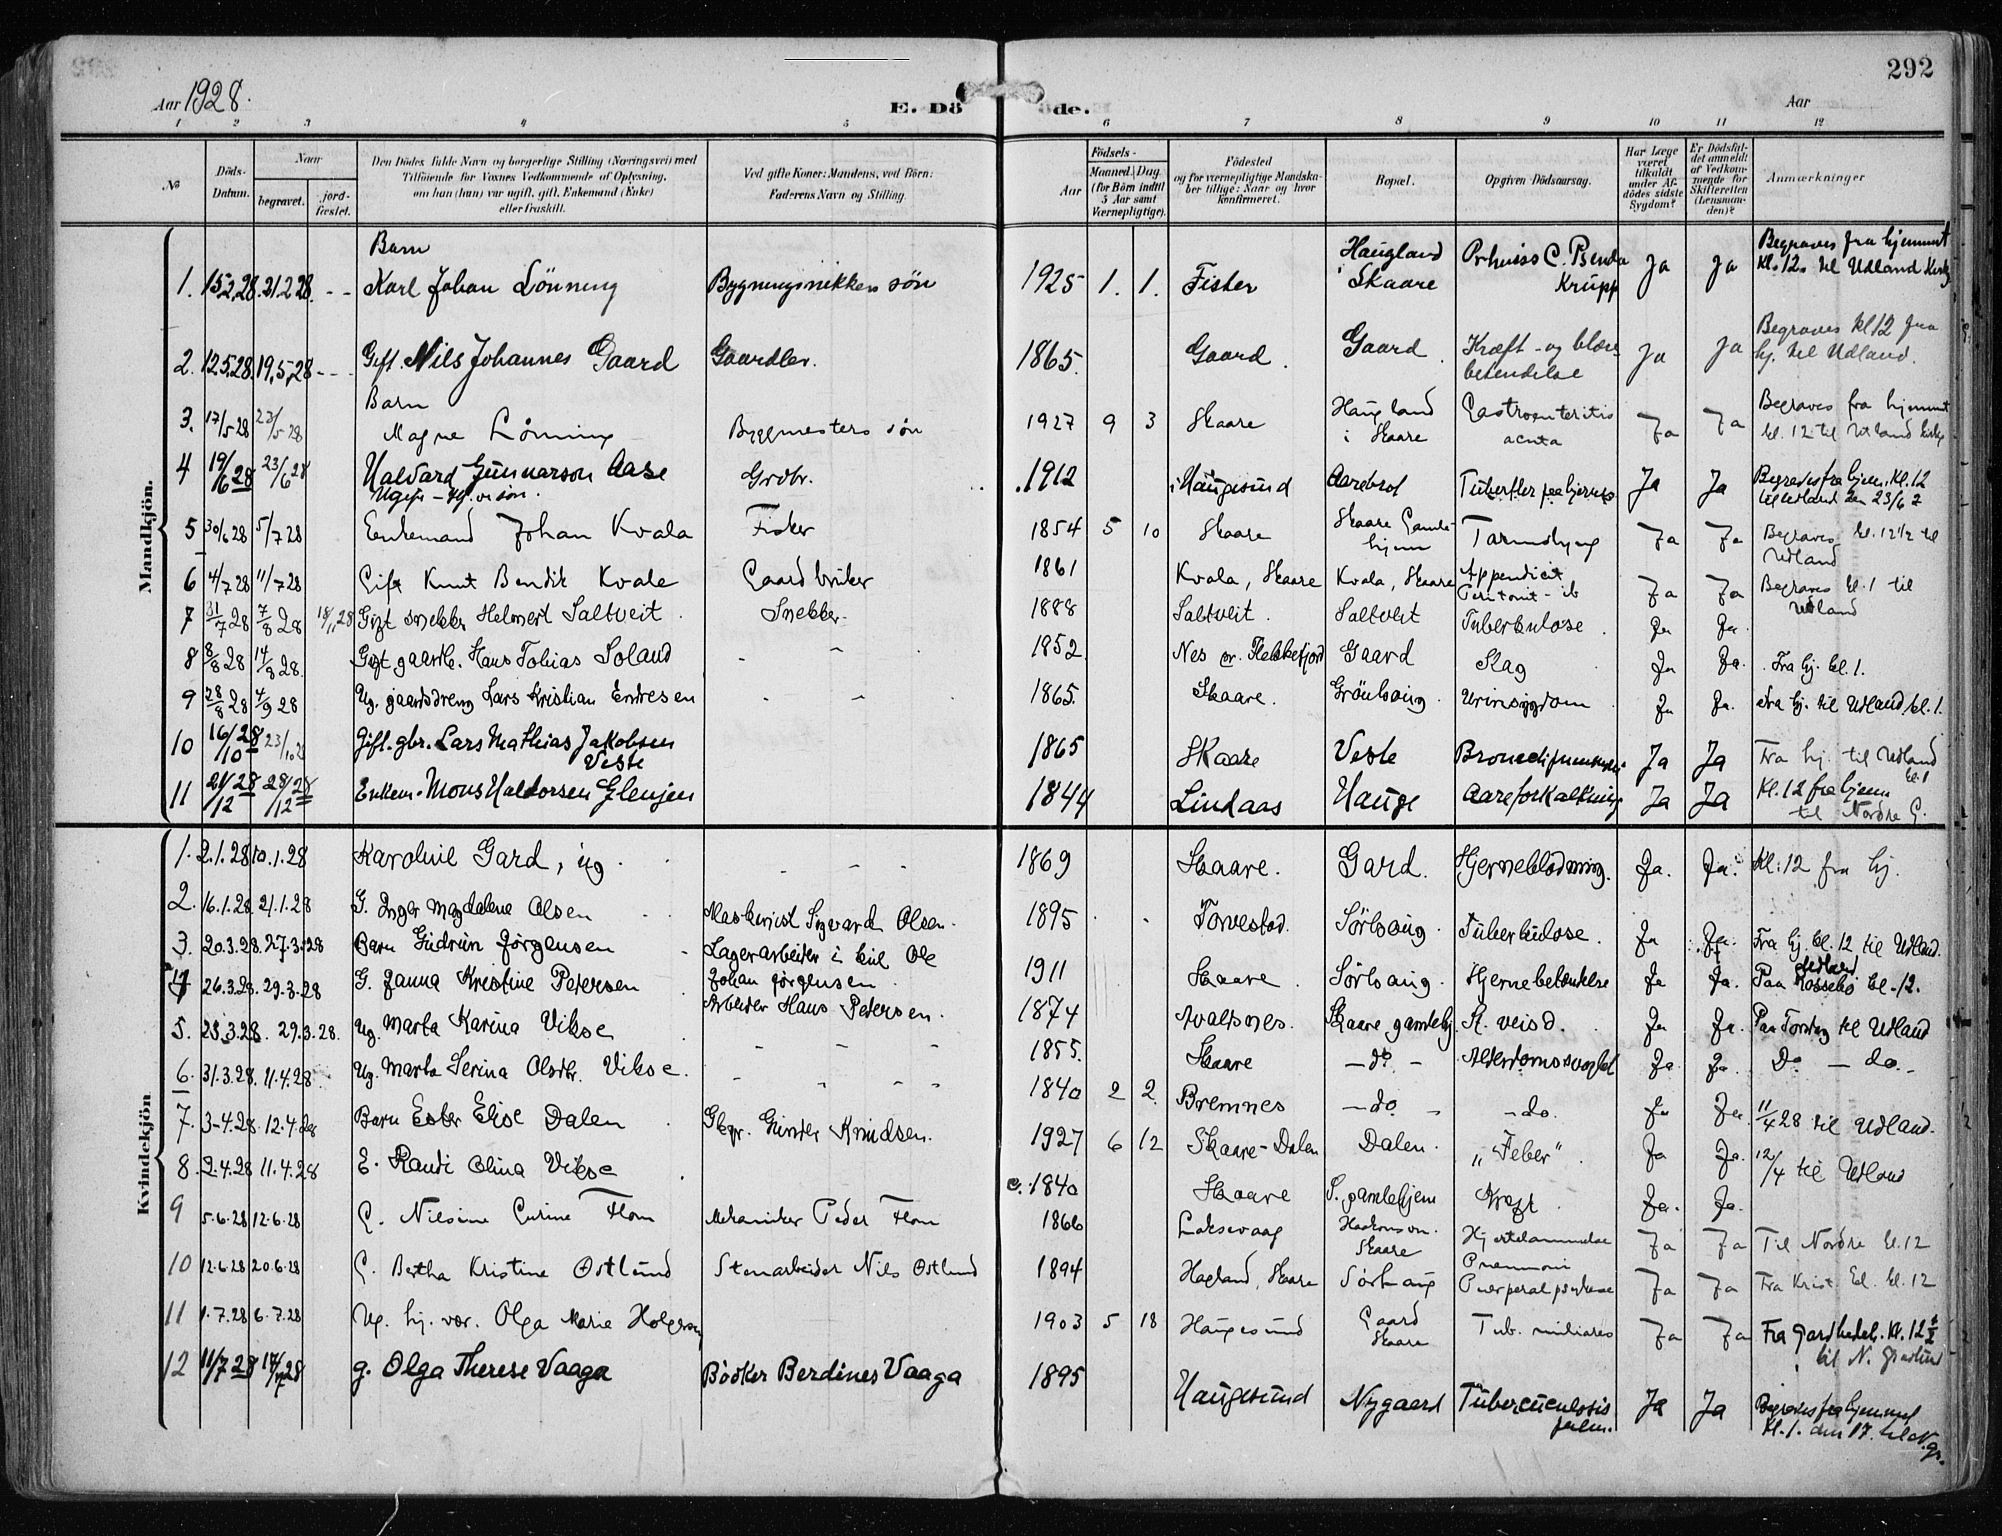 292
Aar 1928.
E. Döde.
Aar
1 2 3 4 5 6 7 8 9 10 11 12
No
Döds-Datum.
Naar
begravet.
jord-fæstet.
Den Dödes fulde Navn og borgerlige Stilling (Næringsvei) med
Tilföiende for Voxnes Vedkommende af Oplysning,
om han (hun) var ugift, gift, Enkemand (Enke)
eller fraskilt.
Ved gifte Koner: Mandens, ved Börn:
Faderens Navn og Stilling.
Födsels-
Aar
Maaned. Dag.
(for Börn indtil
5 Aar samt
Værnepligtige).
Födested
og for værnepligtige Mandska-
ber tillige: Naar og hvor
konfirmeret.
Bopæl.
Opgiven Dödsaarsag.
Har Læge
været
tilkaldt
under Af-
dödes sidste
Sygdom?
Er Dödsfal-
det anmeldt
af Vedkom-
mende for
Skifteretten
(Lensman-
den)?
Anmærkninger
Mandkjön.
Barn
1. 15.2.28. 21.2.28. - - Karl Johan Lönning Bygningsnikkers sön 1925 1. 1. Fister Haugland i Skaare Krupp Ja Ja Begraves fra hjemmet kl. 12. til Udland
2. 12.5.28. 19.5.28 - - - Gift. Nils Johannes Gaard Gaardbr. 1865. Gaard. Gaard. Kræft - og blære betendelse Ja Ja Begraves kl 12 fra hj. til Udland.
Barn
3. 17/5 28 23/5 28 Magne Lönning Byggmesters sön 1927 9 3 Skaare Haugland i Skaare Gastroenteritis acuta Ja Ja Begraves fra hjemmet kl. 12 til Utland
4 19/6 28 23/6 28 Halvard Gunnarson Aase Grdbr. 1912 i Haugesund Ja Ja Begraves fra hjem. Kl. 12 til Utland den 23/6
Ugift
5 30/6 28 5/7 28 Enkemand Johan Kvala Fisker 1854 5 10 Skaare Skaare Gamle-hjem Ja Ja Begraves kl. 12 1/2 til Udland
6 4/7 28 11/7 28 Gift Knut Bendik Kvale Gaardbruker 1861 Kvala, Skaare Kvala, Skaare Appendicit Ja Ja Begraves kl. 1 til Udland
7 31/7 28 7/8 28 Gift snekker Helmert Saltveit. Snekker. 1888 Saltveit. Saltveit Tuberkulose. Ja Ja.
8 8/8 28 14/8 28. Gift gaardb. Hans Tobias Soland - - 1852. Nes pr. Flekkefjord Gaard Slag Ja Ja. Fra hj. kl. 1.
9 28/8 28 4/9 28 Ug. gaardsdreng Lars Kristian Endresen - - 1865. Skaare. Urinsygdom Ja Ja. Fra hj. til Udland kl. 1.
10 16/10 28 23/10 28 Gift. gbr. Lars Mathias Jakobsen Veste 1865 Skaare Veste Ja Ja Fra hj. til Udland kl. 1
11 21/12 28 28/12 28 Enkem. Mons Haldorsen Glenjen 1844 Lindaas Hauge Aareforkalkning Ja Ja Kl. 12 fra hjem til Nordre G.
Kvindekjön
1. 2.1.28 10.1.28 Karoline Gard, ug. - - 1869 Skaare. Gard. Hjerneblödning. Ja. Ja. Kl. 12 fra hj.
2. 16.1.28 21.1.28 G. Inger Magdalene Olsen Maskinist Sigvard Olsen. 1895 Torvestad. Sörhaug. Tuberkulose. Ja Ja. Fra hj. kl. 12 til Udland.
3. 20.3.28. 27.3.28 Barn Gudrun Jörgensen Lagerarbeider i kul Ole Johan Jörgensen. 1911 Skaare. Sörhaug. Hjernebetændelse Ja Ja. Paa Rossebö kl. 12. Udland.
4 26.3.28. 29.3.28 G. Janna Kristine Petersen Arbeider Hans Petersen. 1874 Avaldsnes. Skaare gamlehj. Ja Ja. Paa Torsdag til Udland
5. 23.3.28. 29.3.28. Ug. Marta Karina Vikse - - - 1855. Skaare - do - Ja Ja. Do - do.
6. 31.3.28. 11.4.28 Ug. Marta Serina Olsdtr. Vikse. - - - 1840 2 2. Bremnes - do - - do. Ja Ja. 11/4 28 til Udland.
7. 3-4.28. 12.4.28 Barn Ester Elise Dalen Gbr. Gunder Knudsen. 1927 6 12 Skaare - Dalen Dalen. "Feber". Ja Ja. 12/4 til Udland
8. 2.4.28 11.4.28 E. Randi Olina Vikse c. 1840 Skaare S. gamlehjem Kræft. Ja. Ja.
9 5.6.28 12.6.28 G. Nilsine Flom Mekaniker Peder Flom 1866 Laksevaag Skaare Hjertelammelse Ja Ja Til Nordre kl. 12
10 12.6.28 20.6.28 G. Bertha Kristine Østlund Stenarbeider Nils Østlund 1894 Hagland, Skaare Sörhaug Pneumoni Puerperal psykose Ja Ja Fra Krist. Ed. kl. 12
11 1.7.28 6.7.28 Ug. hj. vær. Olga Marie Holgersen 1903 5 18 Haugesund Gaard Skaare Tub. miliares Ja Ja Fra Gard bedeh. Kl. 12 1/2 til N.
12 11/7 28 17/7 28 g. Olga Therese Vaaga Bödker Berdines Vaaga 1895 Haugesund Nygaard Tuberculosis pulm. Ja Ja Begraves fra hjemmet Kl. 1. den 17. til N. gr.